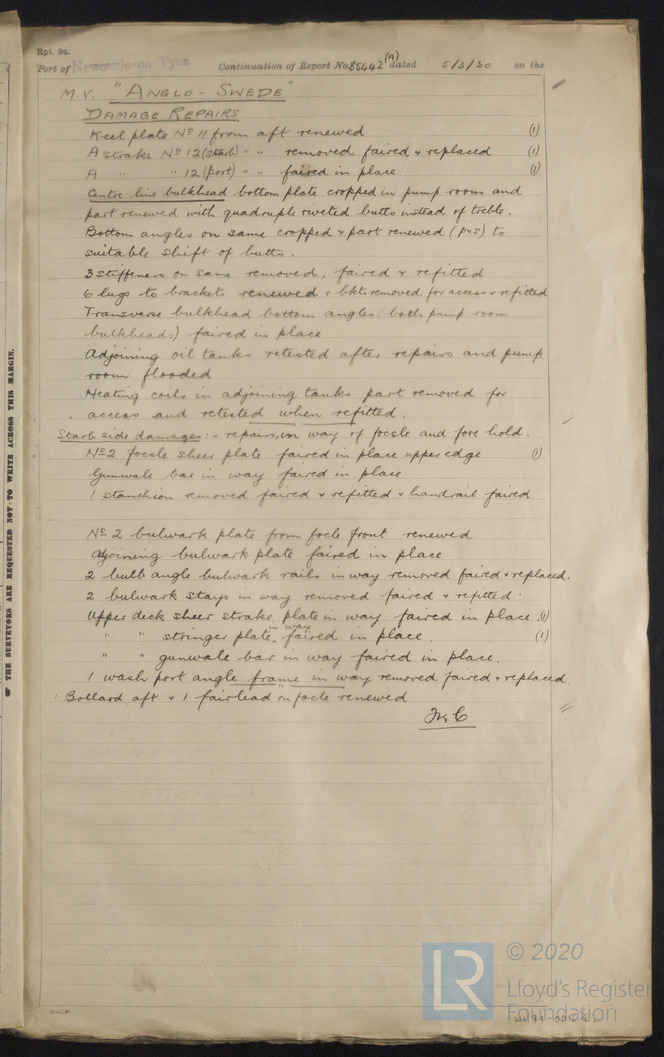 Rpt. 9a.
Port of Newcastle-on-Tyne Continuation of Report No. 85442 (A) dated 5/3/30 on the
M.V. "ANGLO-SWEDE"
DAMAGE REPAIRS
Keel plate No 11 from aft renewed (1)
A strake No 12 (starb) " " removed faired & replaced (1)
A " " 12 (port) " " faired in place (1)
Centre line bulkhead bottom plate cropped in pump room and
part renewed with quadruple riveted butts instead of treble.
Bottom angles on same cropped & part renewed (p&s) to
suitable shift of butts.
3 stiffeners on same removed, faired & refitted
6 lugs to brackets renewed & bkts removed for access & refitted
Transverse bulkhead bottom angles (both pump room
bulkheads) faired in place
Adjoining oil tanks retested after repairs and pump
room flooded
Heating coils in adjoining tanks part removed for
access and retested when refitted.
Starb side damages:- repairs in way of focsle and fore hold.
No 2 focsle sheer plate faired in place upper edge (1)
Gunwale bar in way faired in place
1 stanchion removed faired & refitted & handrail faired
No 2 bulwark plate from focle front renewed
adjoining bulwark plate faired in place
2 bulb angle bulwark rails in way removed faired & replaced.
2 bulwark stays in way removed faired & refitted.
Upper deck sheer strake plate in way faired in place. (1)
" " stringer plate in way faired in place. (1)
" " gunwale bar in way faired in place.
1 wash port angle frame in way removed faired & replaced.
1 Bollard aft & 1 fairlead on focle renewed
OF THE SURVEYORS ARE REQUESTED NOT TO WRITE ACROSS THIS MARGIN.
LR
© 2020
Lloyd's Register
Foundation